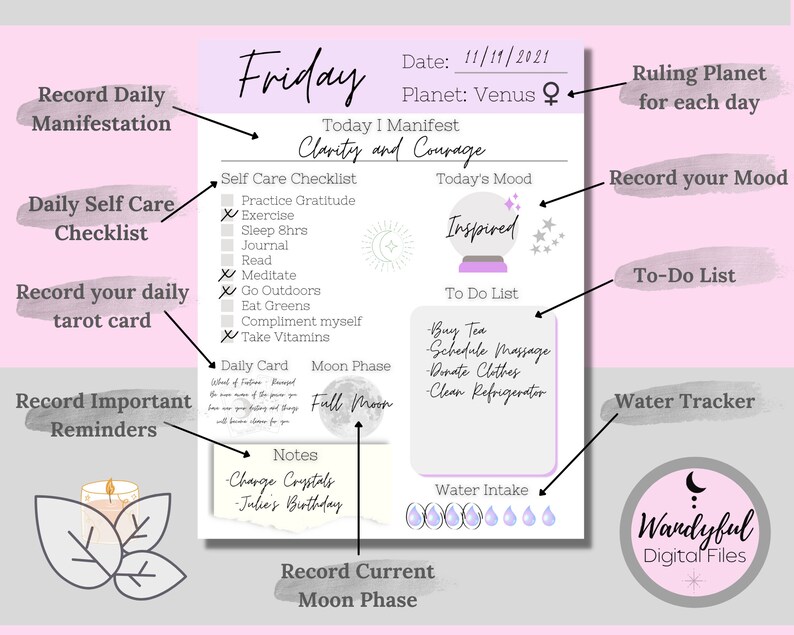 Friday
Date: 11/19/2021
Planet: Venus ♀
Record Daily
Manifestation
Ruling Planet
for each day
Today I Manifest
Clarity and Courage
Self Care Checklist
Practice Gratitude
x Exercise
Sleep 8hrs
Journal
Read
x Meditate
x Go Outdoors
Eat Greens
Compliment myself
x Take Vitamins
Daily Self Care
Checklist
Today's Mood
Inspired
Record your Mood
To Do List
-Buy Tea
-Schedule Massage
-Donate Clothes
-Clean Refrigerator
To-Do List
Record your daily
tarot card
Daily Card
Wheel of Fortune - Reversed
Be more aware of the power you
have over your destiny and things
will become clearer for you
Moon Phase
Full Moon
Record Important
Reminders
Notes
-Charge Crystals
-Julie's Birthday
Water Intake
Water Tracker
Record Current
Moon Phase
Wandyful
Digital Files